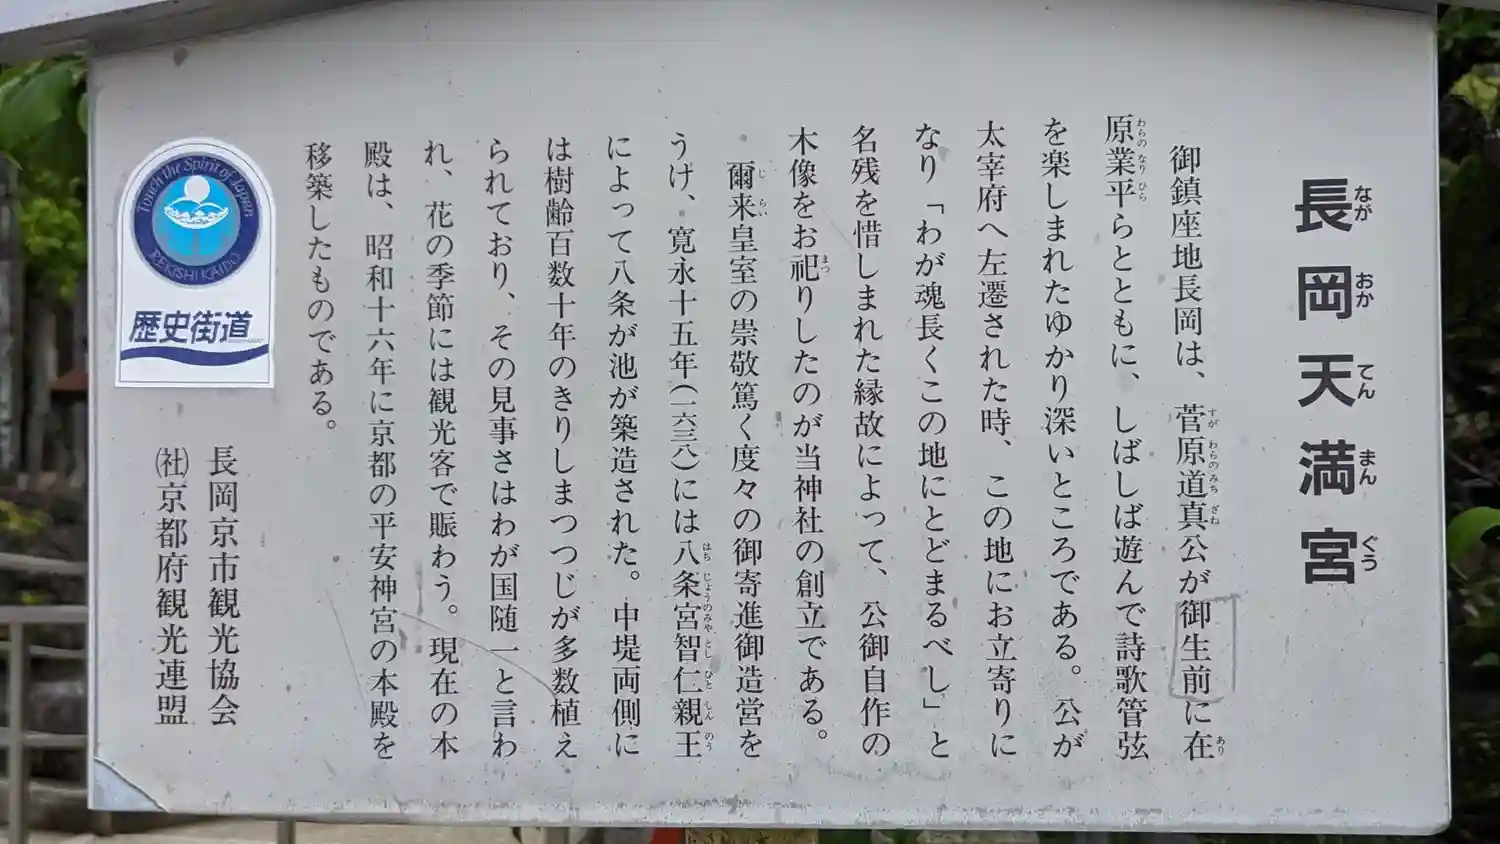 長岡天満宮
ながおかてんまんぐう
御鎮座地長岡は、菅原道真公が御生前に在
原業平らとともに、しばしば遊んで詩歌管弦
を楽しまれたゆかり深いところである。公が
太宰府へ左遷された時、この地にお立寄りに
なり「わが魂長くこの地にとどまるべし」と
名残を惜しまれた縁故によって、公御自作の
木像をお祀りしたのが当神社の創立である。
爾来皇室の崇敬篤く度々の御寄進御造営を
うけ、寛永十五年(一六三八)には八条宮智仁親王
によって八条が池が築造された。中堤両側に
は樹齢百数十年のきりしまつつじが多数植え
られており、その見事さはわが国随一と言わ
れ、花の季節には観光客で賑わう。現在の本
殿は、昭和十六年に京都の平安神宮の本殿を
移築したものである。
長岡京市観光協会
㈳京都府観光連盟
Touch the Spirit of Japan
REKISHI KAIDO
歴史街道